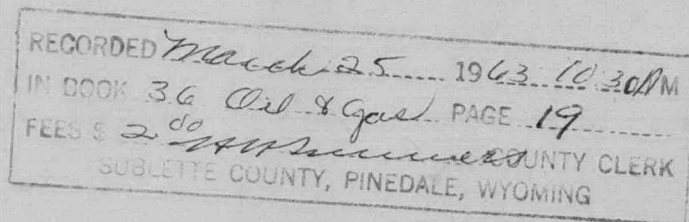 RECORDED March 25 1963 10 30 AM
IN BOOK 36 Oil & Gas PAGE 19
FEES $ 2 00 COUNTY CLERK
SUBLETTE COUNTY, PINEDALE, WYOMING